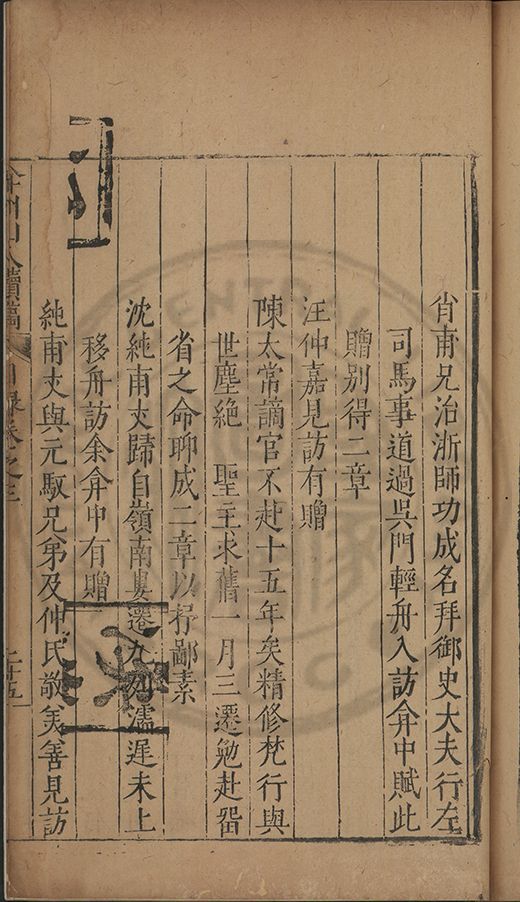 肖甫兄治浙師功成名拜御史大夫行左
司馬事道過吳門輕舟入訪弇中賦此
贈別得二章
汪仲嘉見訪有贈
陳太常謫官不赴十五年矣精修梵行與
世塵絕 聖主求舊一月三遷勉赴留
省之命聊成二章以抒鄙素
沈純甫丈歸自嶺南屢遷九列濡遲未上
移舟訪余弇中有贈
純甫丈與元馭兄弟及仲氏敬美善見訪
弇州山人續稿 目錄卷之三